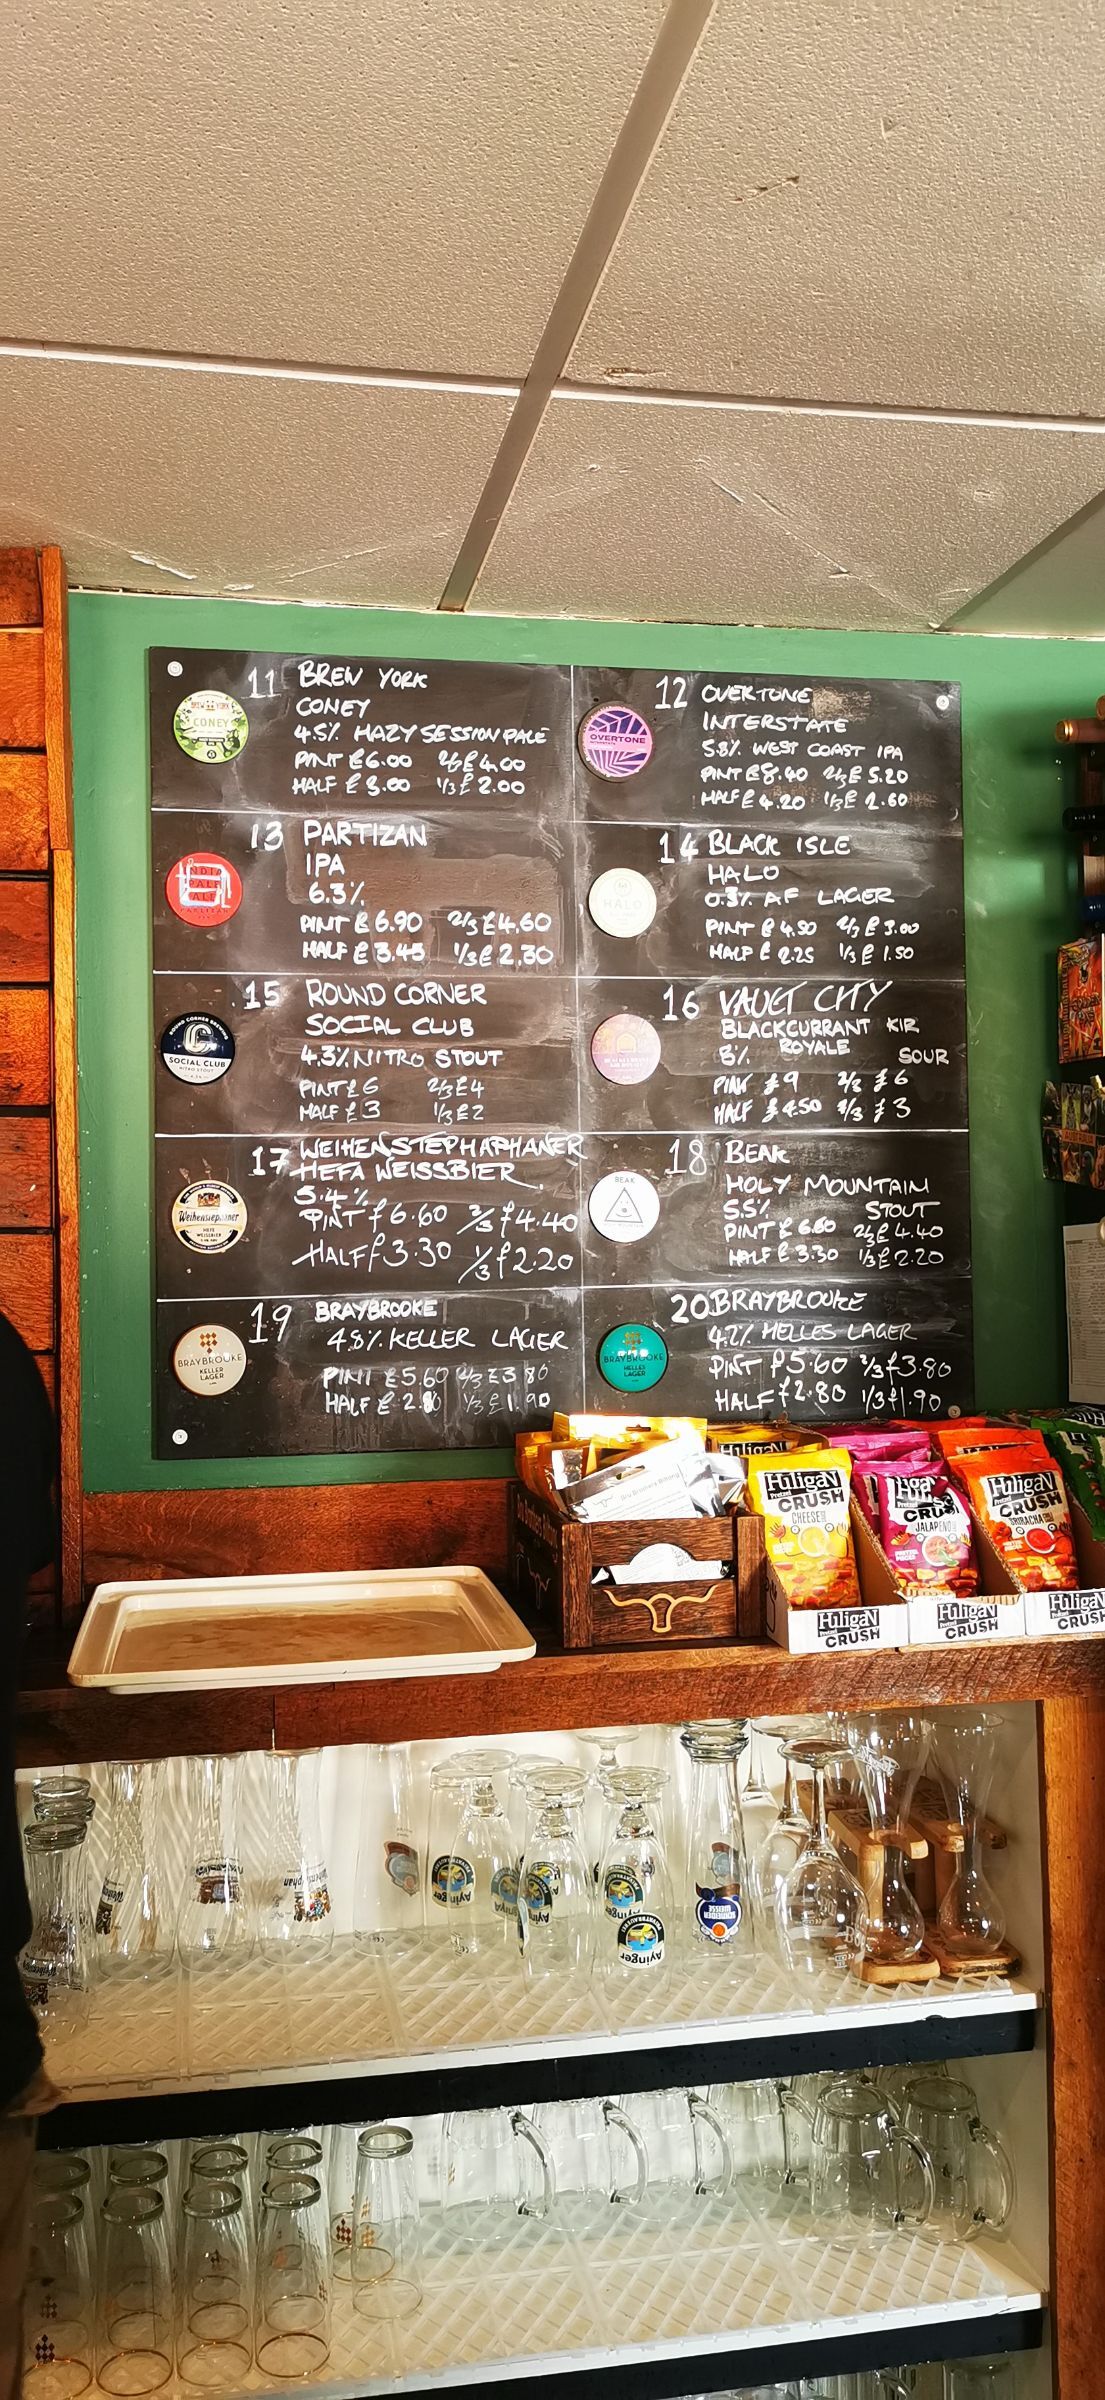 11 BREW YORK
CONEY
4.5% HAZY SESSION PALE
PINT £6.00 2/3 £4.00
HALF £3.00 1/3 £2.00
CONEY
12 OVERTONE
INTERSTATE
5.8% WEST COAST IPA
PINT £8.40 2/3 £5.20
HALF £4.20 1/3 £2.60
OVERTONE
13 PARTIZAN
IPA
6.3%
PINT £6.90 2/3 £4.60
HALF £3.45 1/3 £2.30
INDIA
PALE
ALE
PARTIZAN
14 BLACK ISLE
HALO
0.3% AF LAGER
PINT £4.50 2/3 £3.00
HALF £2.25 1/3 £1.50
HALO
15 ROUND CORNER
SOCIAL CLUB
4.3% NITRO STOUT
PINT £6 2/3 £4
HALF £3 1/3 £2
ROUND CORNER BREWING
SOCIAL CLUB
NITRO STOUT
16 VAULT CITY
BLACKCURRANT KIR
ROYALE
5% SOUR
PINT £9 2/3 £6
HALF £4.50 1/3 £3
17 WEIHENSTEPHAPHANER
HEFA WEISSBIER
5.4%
PINT £6.60 2/3 £4.40
HALF £3.30 1/3 £2.20
Weihenstephaner
18 BEAK
HOLY MOUNTAIN
5.5% STOUT
PINT £6.60 2/3 £4.40
HALF £3.30 1/3 £2.20
BEAK
19 BRAYBROOKE
4.8% KELLER LAGER
PINT £5.60 2/3 £3.80
HALF £2.80 1/3 £1.90
BRAYBROOKE
KELLER
LAGER
20 BRAYBROOKE
4.2% HELLES LAGER
PINT £5.60 2/3 £3.80
HALF £2.80 1/3 £1.90
BRAYBROOKE
HELLES
LAGER
HuligaN
HuligaN
Pretzel CRUSH
CHEESE
HuligaN
Pretzel CRUSH
JALAPENO
HuligaN
Pretzel CRUSH
SRIRACHA
HuligaN
CRUSH
HuligaN
CRUSH
HuligaN
CRUSH
Ayinger
Ayinger
Ayinger
SCHNEIDER
WEISSE